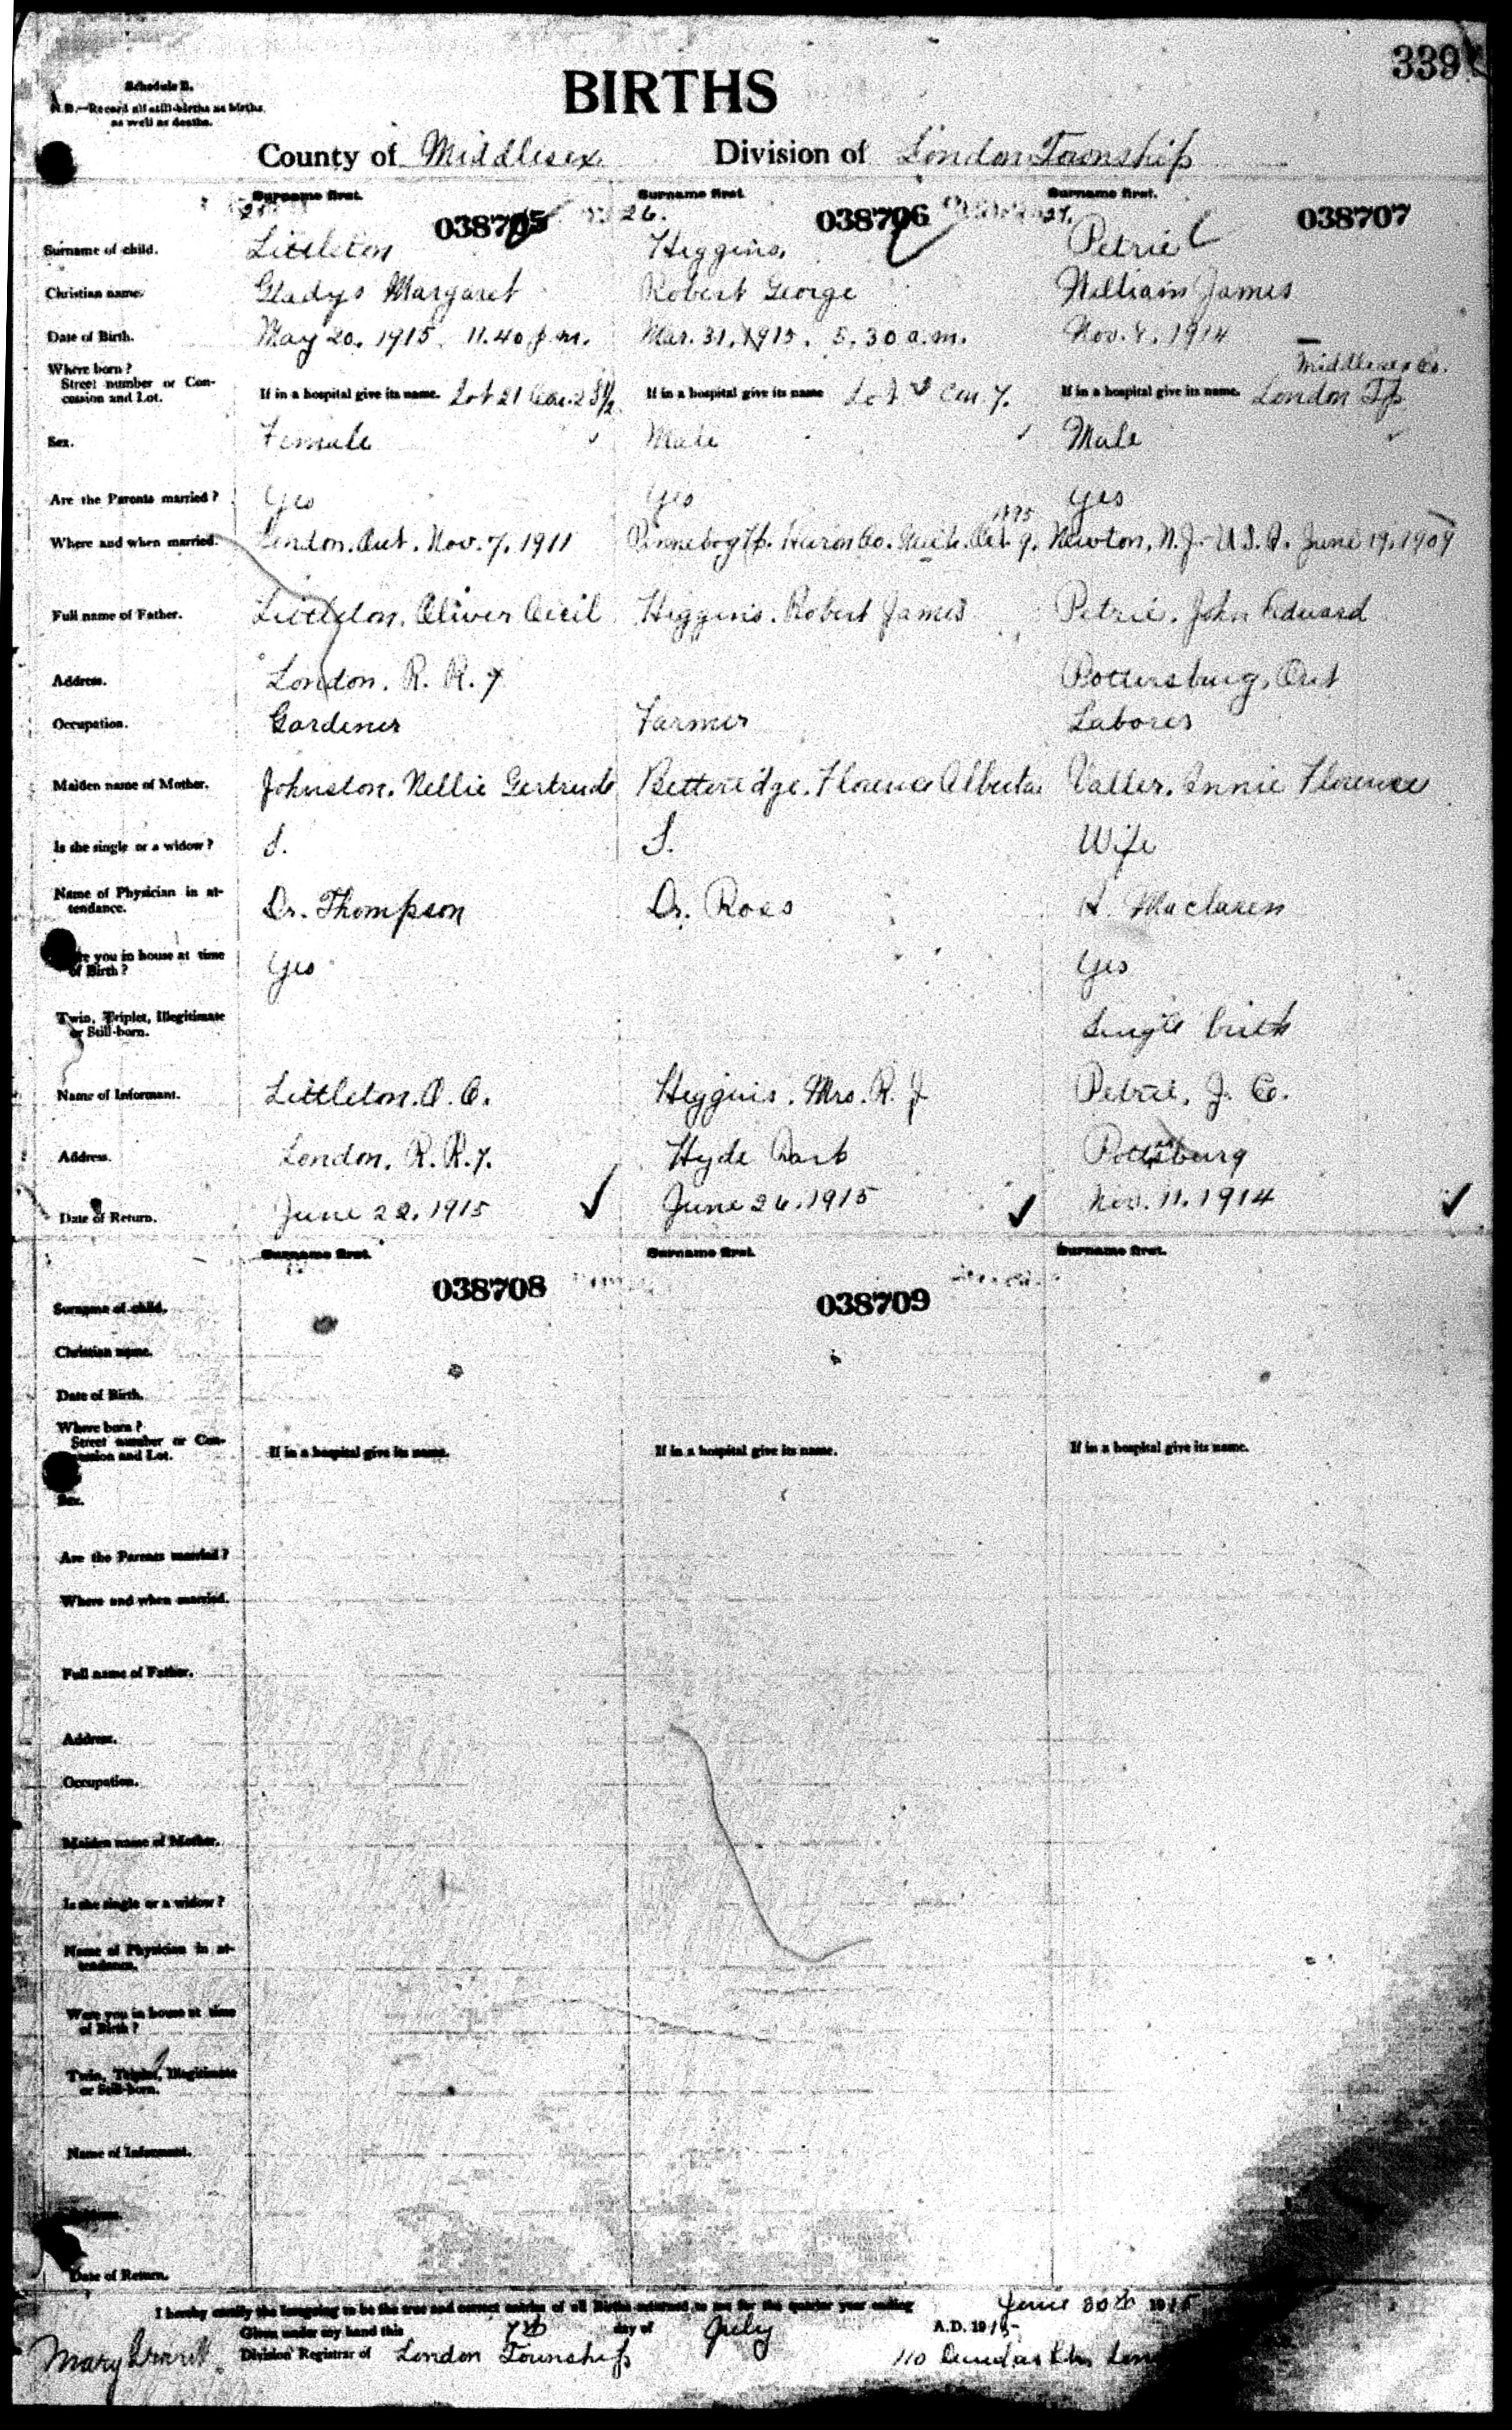 339
Schedule B.
N.B.—Record all still-births as births,
as well as deaths.
BIRTHS
County of Middlesex Division of London Township
Surname first. Surname first. Surname first.
25. 26. 27.
038705 038706 038707
Surname of child. Littleton Higgins, Petrie
Christian name. Gladys Margaret Robert George William James
Date of Birth. May 20, 1915, 11.40 p.m. Mar. 31, 1915, 5.30 a.m. Nov. 1914
Where born?
Street number or Con-
cession and Lot.
If in a hospital give its name. Lot 21 Con. 2 If in a hospital give its name Lot Con. 7. If in a hospital give its name. Middlesex Co. London Tp
Sex. Female Male Male
Are the Parents married? Yes Yes Yes
Where and when married. London, Ont. Nov. 7, 1911 Pinnebog Tp. Huron Co. Mich. Oct 9, 1895 Newton, N.J. U.S.A. June 19, 1909
Full name of Father. Littleton, Oliver Cecil Higgins, Robert James Petrie, John Edward
Address. London, R. R. 7 Pottersburg, Ont
Occupation. Gardener Farmer Laborer
Maiden name of Mother. Johnston, Nellie Gertrude Betteridge, Florence Alberta Valler, Annie Florence
Is she single or a widow? S. S. Wife
Name of Physician in at-
tendance. Dr. Thompson Dr. Ross Maclaren
Were you in house at time
of Birth? Yes Yes
Twin, Triplet, Illegitimate
or Still-born. Single birth
Name of Informant. Littleton, O. C. Higgins, Mrs. R. J Petrie, J. E.
Address. London, R. R. 7. Hyde Park Pottsburg
Date of Return. June 22, 1915 June 26, 1915 Nov. 11, 1914
Surname first. Surname first. Surname first.
038708 038709
Surname of child.
Christian name.
Date of Birth.
Where born?
Street number or Con-
cession and Lot.
If in a hospital give its name. If in a hospital give its name. If in a hospital give its name.
Sex.
Are the Parents married?
Where and when married.
Full name of Father.
Address.
Occupation.
Maiden name of Mother.
Is she single or a widow?
Name of Physician in at-
tendance.
Were you in house at time
of Birth?
Twin, Triplet, Illegitimate
or Still-born.
Name of Informant.
Address.
Date of Return.
I hereby certify the foregoing to be the true and correct entries of all Births returned to me for the quarter year ending June 30th 1915
Given under my hand this 7th day of July A.D. 1915
Mary Division Registrar of London Township 110 Dundas